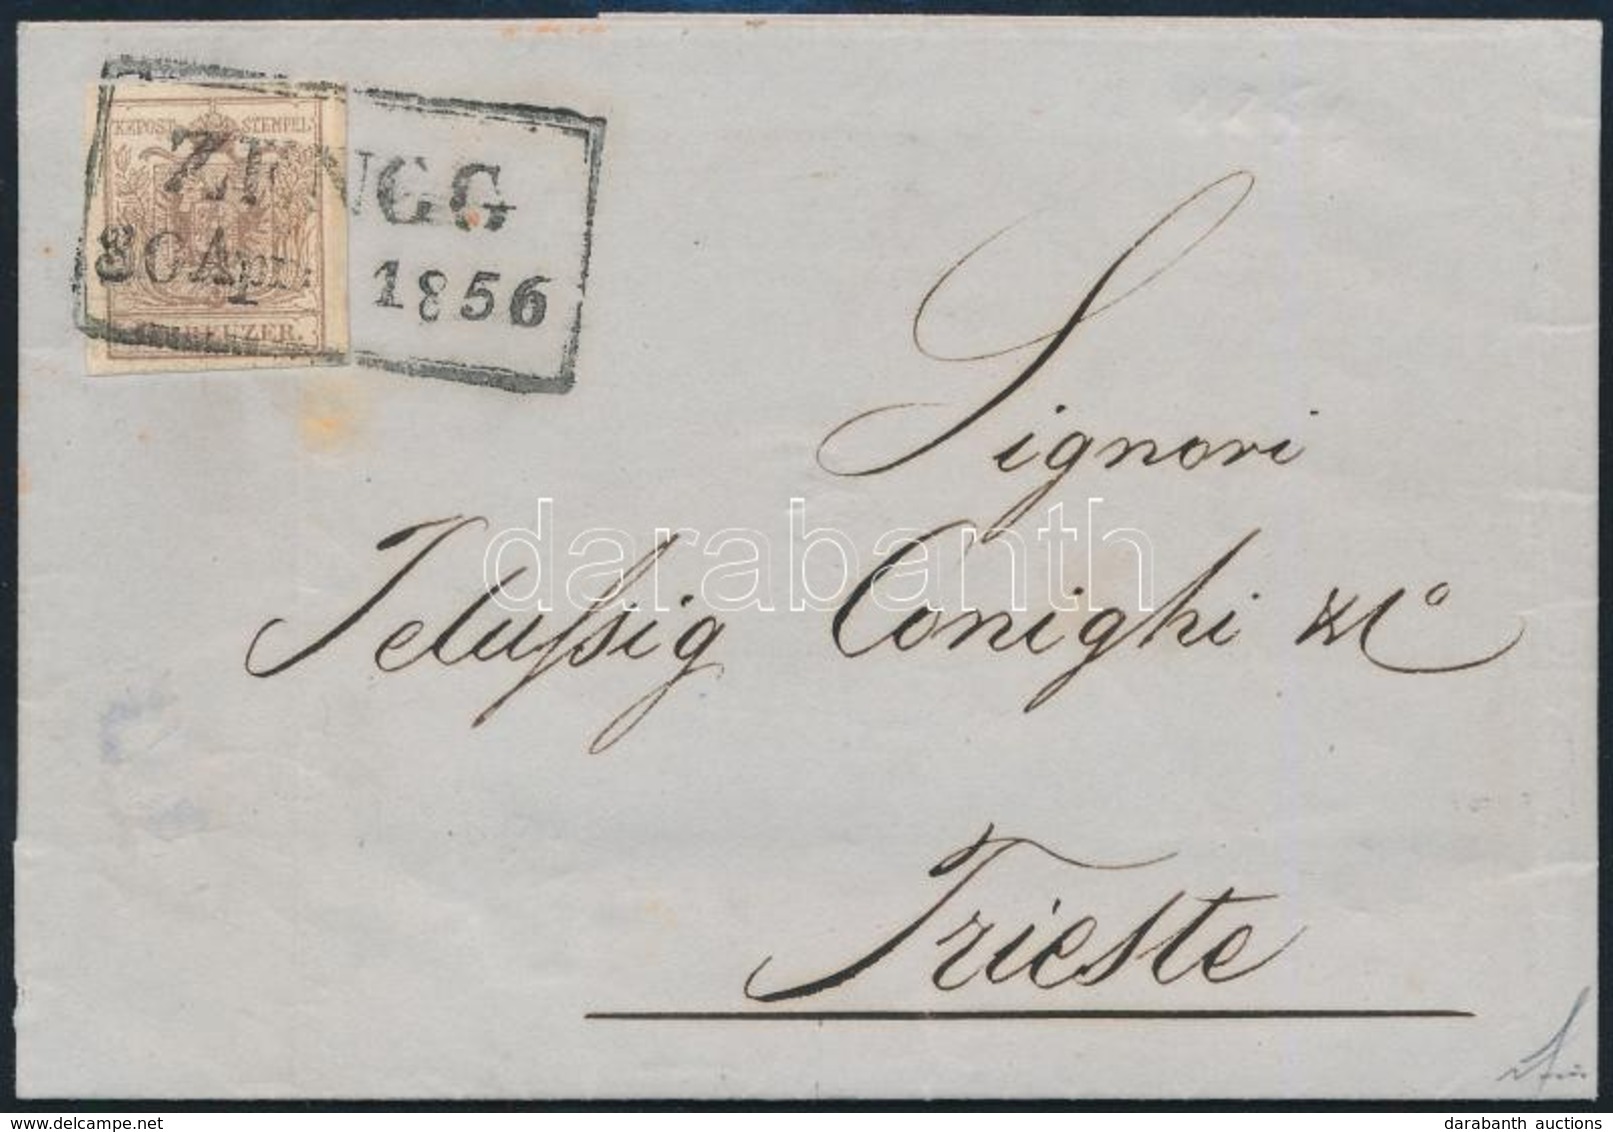 KKPOST-STEMPEL
ZENGG
30 Apr: 1856
KREUZER.
Signori
Conighi & Cº
Trieste
darabanth
delcampe.net
darabanth auctions